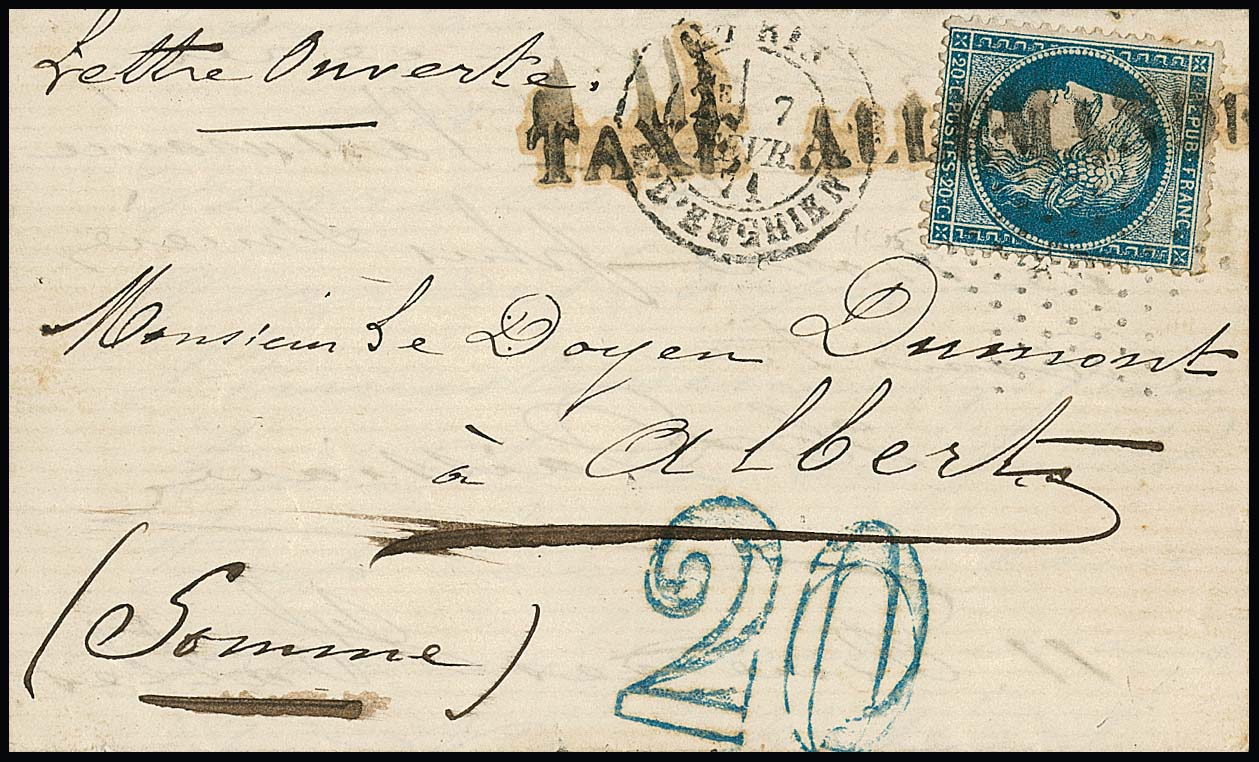 Lettre Ouverte.
7
FEVR.
71
D'ENGHIEN
TAXE ALLEM
20·C·POSTES·20·C
REPUB·FRANC
Monsieur Le Doyen Dumont
à Albert
(Somme)
20